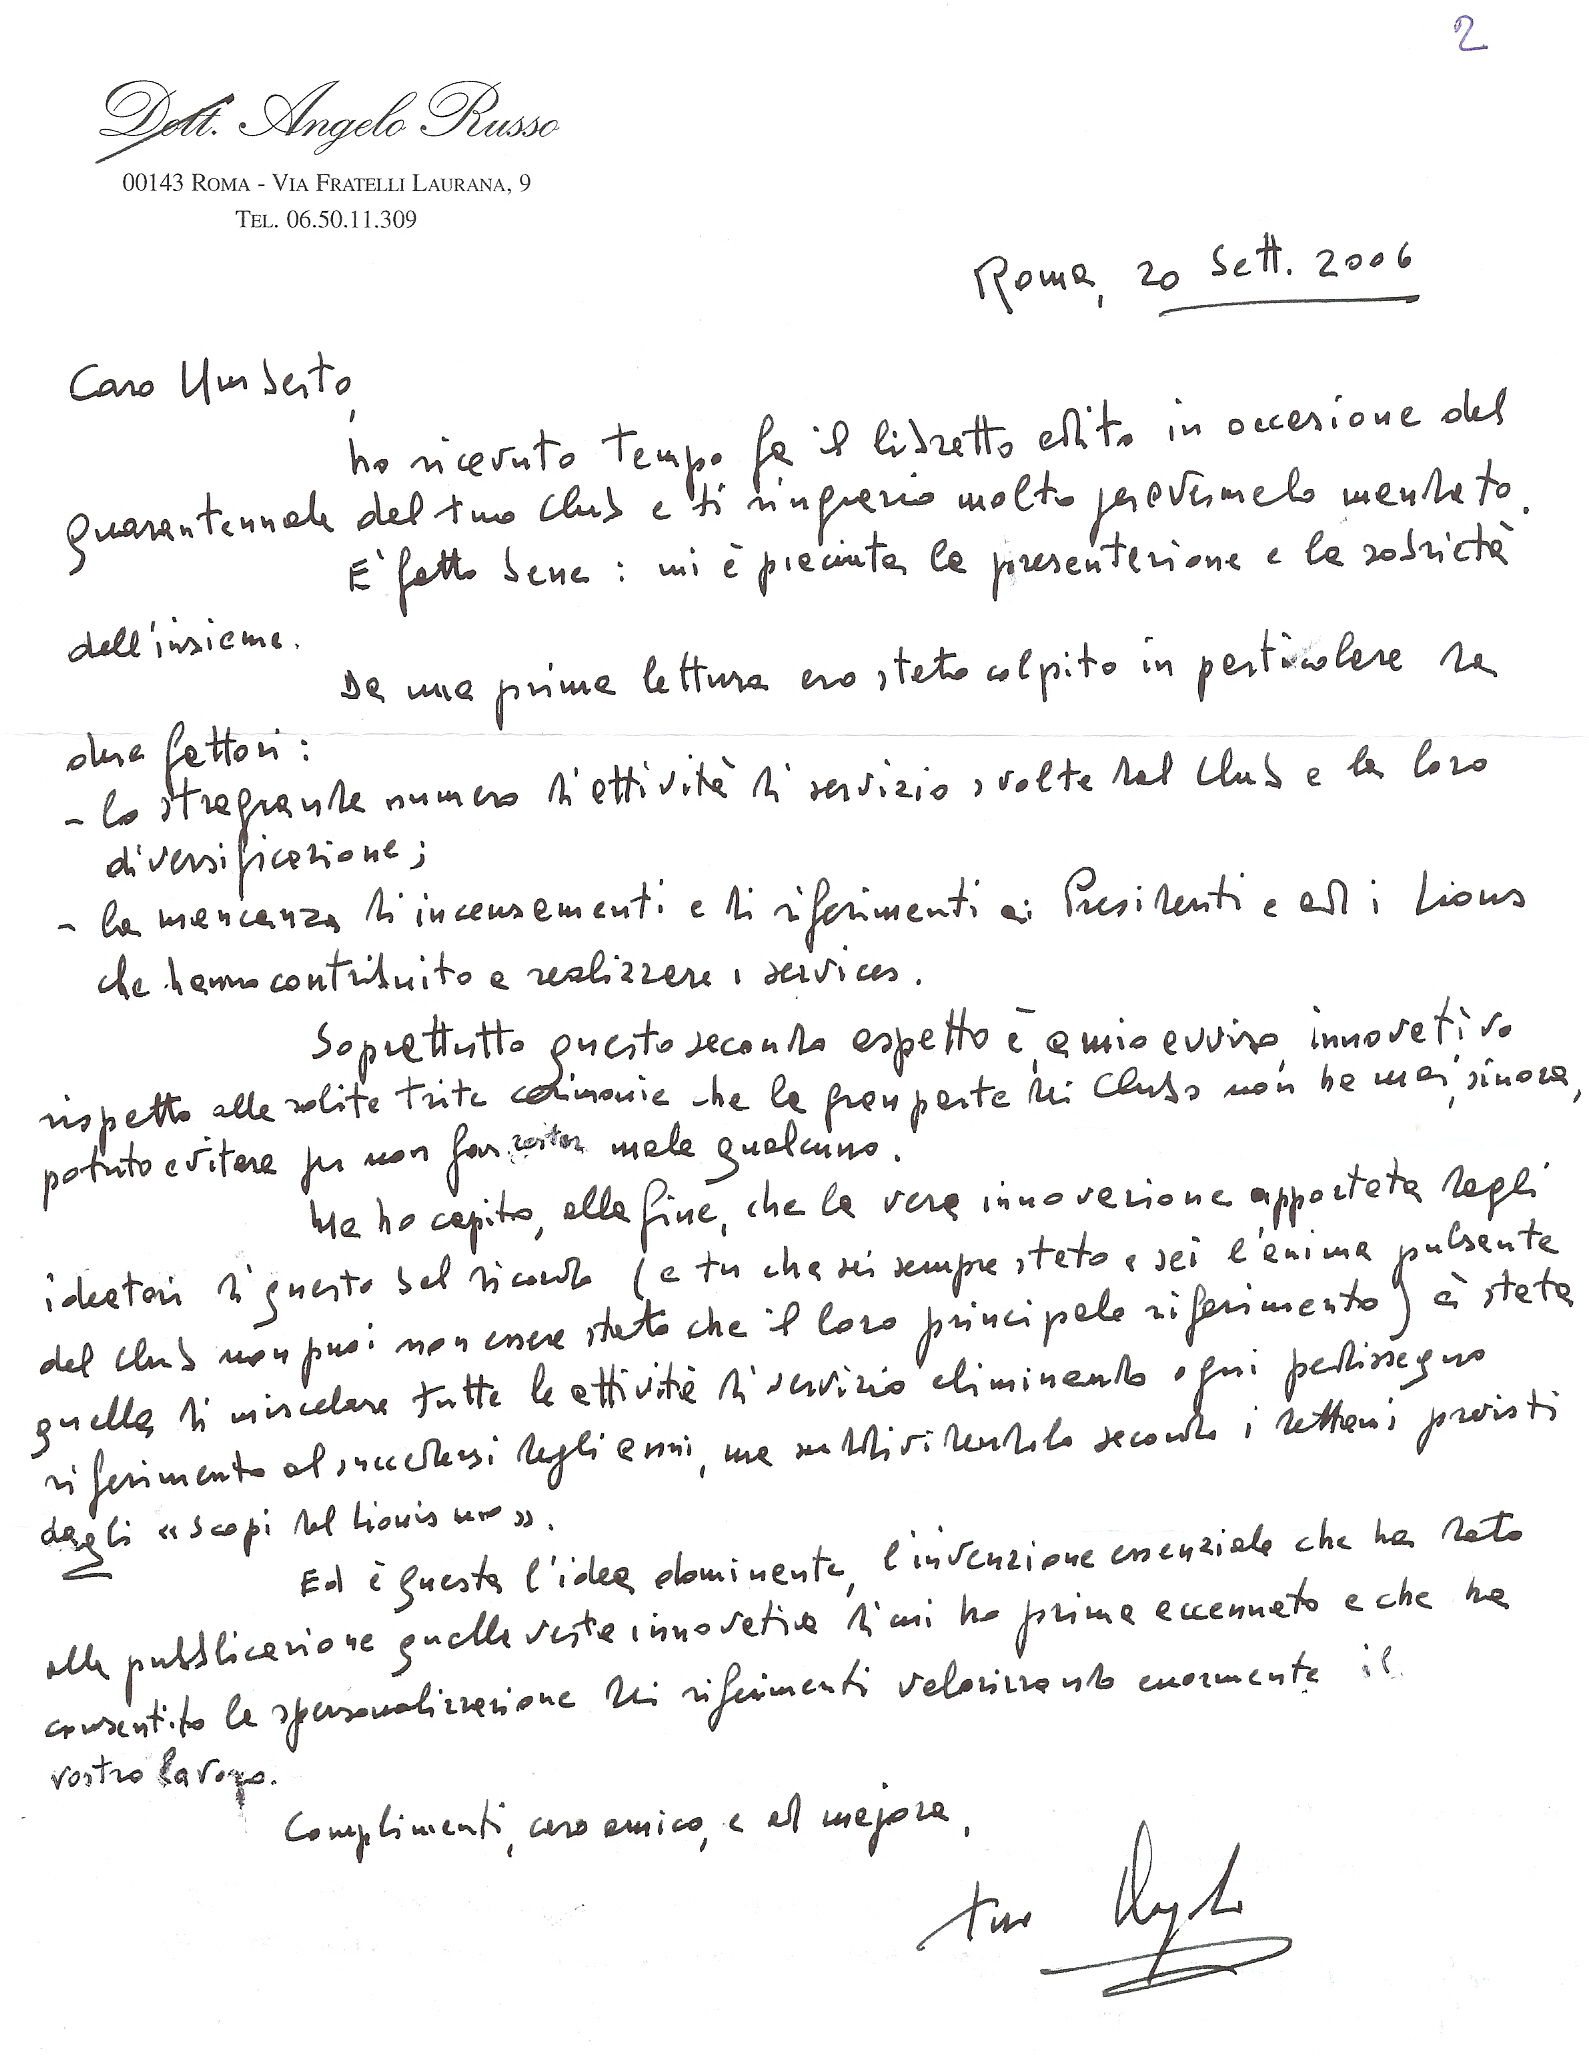 2
Dott. Angelo Russo
00143 Roma - Via Fratelli Laurana, 9
Tel. 06.50.11.309
Roma, 20 Sett. 2006
Caro Umberto,
ho ricevuto tempo fa il libretto edito in occasione del
quarantennale del tuo Club e ti ringrazio molto per avermelo mandato.
E' fatto bene: mi è piaciuta la presentazione e la sobrietà
dell'insieme.
Da una prima lettura ero stato colpito in particolare da
due fattori:
- lo stragrande numero di attività di servizio svolte dal Club e la loro
diversificazione;
- la mancanza di incensamenti e di riferimenti ai Presidenti e ad i Lions
che hanno contribuito a realizzare i services.
Soprattutto questo secondo aspetto è, a mio avviso, innovativo
rispetto alle solite trite cerimonie che la gran parte dei Clubs non ha mai, sinora,
potuto evitare per non far restar male qualcuno.
Ma ho capito, alla fine, che la vera innovazione apportata dagli
ideatori di questo bel ricordo (e tu che sei sempre stato e sei l'anima pulsante
del Club non puoi non essere stato che il loro principale riferimento) è stata
quella di miscelare tutte le attività di servizio eliminando ogni pedissequo
riferimento al succedersi degli anni, ma suddividendolo secondo i dettami previsti
dagli «Scopi del Lionismo».
Ed è questa l'idea dominante, l'invenzione essenziale che ha dato
alla pubblicazione quella veste innovativa di cui ho prima accennato e che ha
consentito la spersonalizzazione dei riferimenti valorizzando enormemente il
vostro lavoro.
Complimenti, caro amico, e ad majora,
tuo Angelo